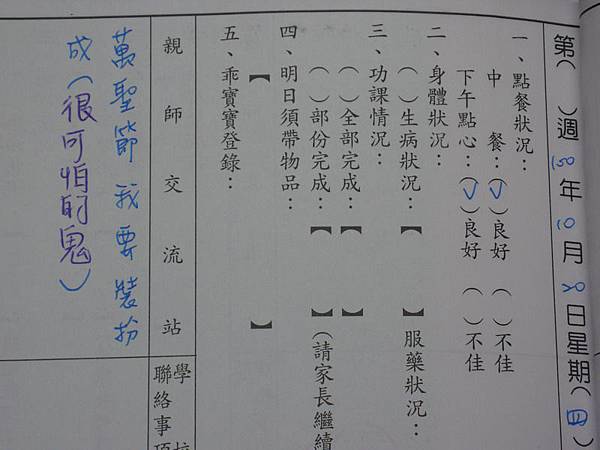 第( )週 100年10月20日星期(四)
一、點餐狀況：
中 餐：(✓)良好 ( )不佳
下午點心：(✓)良好 ( )不佳
二、身體狀況：
( )生病狀況：【 】服藥狀況：
三、功課情況：
( )全部完成：【 】
( )部份完成：【 】(請家長繼續
四、明日須帶物品：
【 】
五、乖寶寶登錄：
親師交流站
學校
聯絡事項
萬聖節我要裝扮
成(很可怕的鬼)